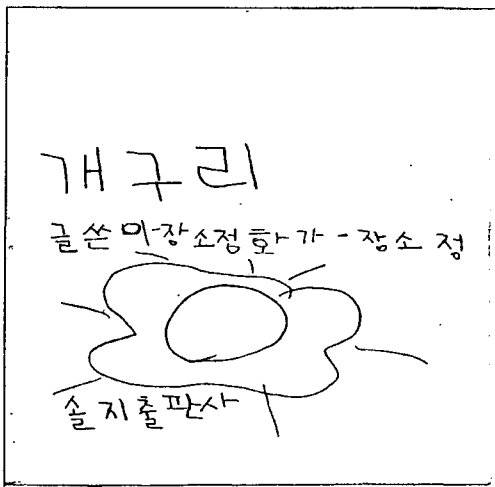 개구리
글쓴이-장소정 화가-장소정
솔지출판사